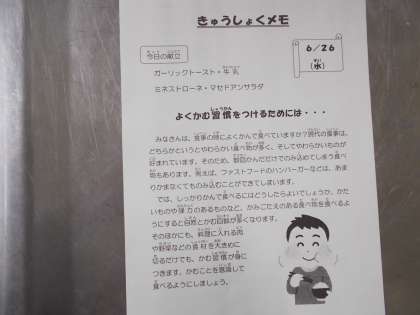 きゅうしょくメモ
6/26
(水)
今日の献立
ガーリックトースト・牛乳
ミネストローネ・マセドアンサラダ
よくかむ習慣をつけるためには・・・
みなさんは、食事の時によくかんで食べていますか?現代の食事は、
どちらかというとやわらかい食べ物が多く、そしてやわらかいものが
好まれています。そのため、数回かんだだけでのみ込めてしまう食べ
物もあります。例えば、ファストフードのハンバーガーなどは、あま
りかまなくてものみ込むことができてしまいます。
では、しっかりかんで食べるにはどうしたらよいでしょうか。かた
いものや弾力のあるものなど、かみごたえのある食べ物を食べるよ
うにすると自然とかむ回数が多くなります。
そのほかにも、料理に入れる肉
や野菜などの食材を大きめに
切るだけでも、かむ習慣が身に
つきます。かむことを意識して
食べるようにしましょう。